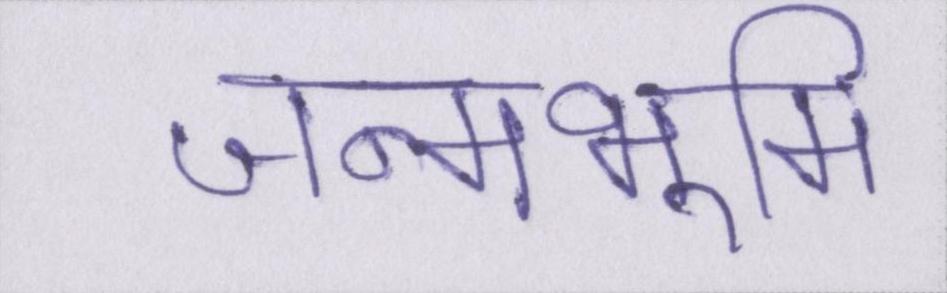 जन्मभूमि